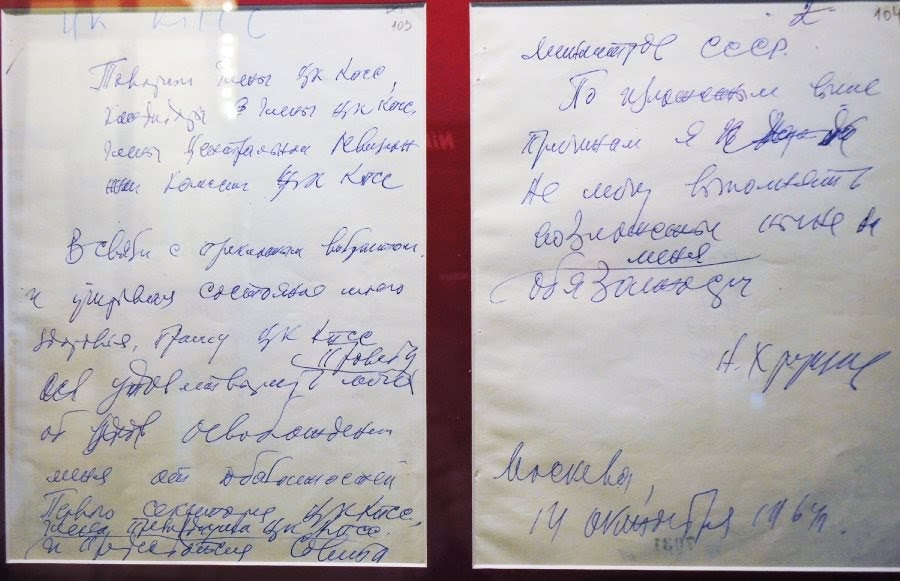 ЦК КПСС
103
Товарищи члены ЦК КПСС,
кандидаты в члены ЦК КПСС,
члены Центральной Ревизион
ной комисии ЦК КПСС
В связи с преклоным возрастом
и учитывая состояние моего
здоровия, прошу ЦК КПСС
просьбу
удовлетворить
об освобождении
меня от обязаностей
Первого секретаря ЦК КПСС,
члена Президиума ЦК КПСС
и председателя Совмина
2
104
министров СССР.
По изложеным выше
причинам я
не могу выполнять
возложеные ныне на
меня
обязаности
Н. Хрущев
Москва,
14 октября 1964 г.